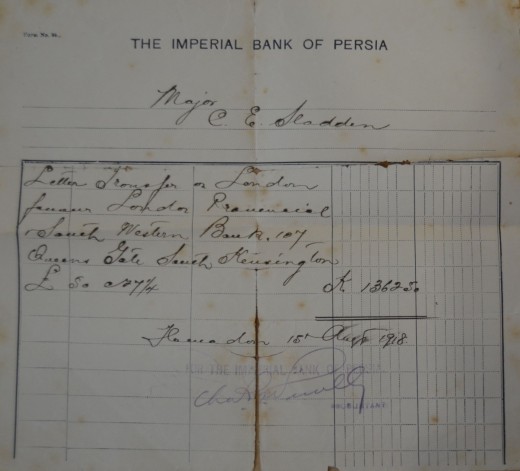 Form No. 
THE IMPERIAL BANK OF PERSIA
Major
C. E. Sladden
Letter Transfer on London
favour London Provincial
& South Western Bank, 107
Queens Gate South Kensington
£ 50 @ 27¼ K. 1362.50
Hamadan 15th Augt 1918
FOR THE IMPERIAL BANK OF PERSIA
ACCOUNTANT